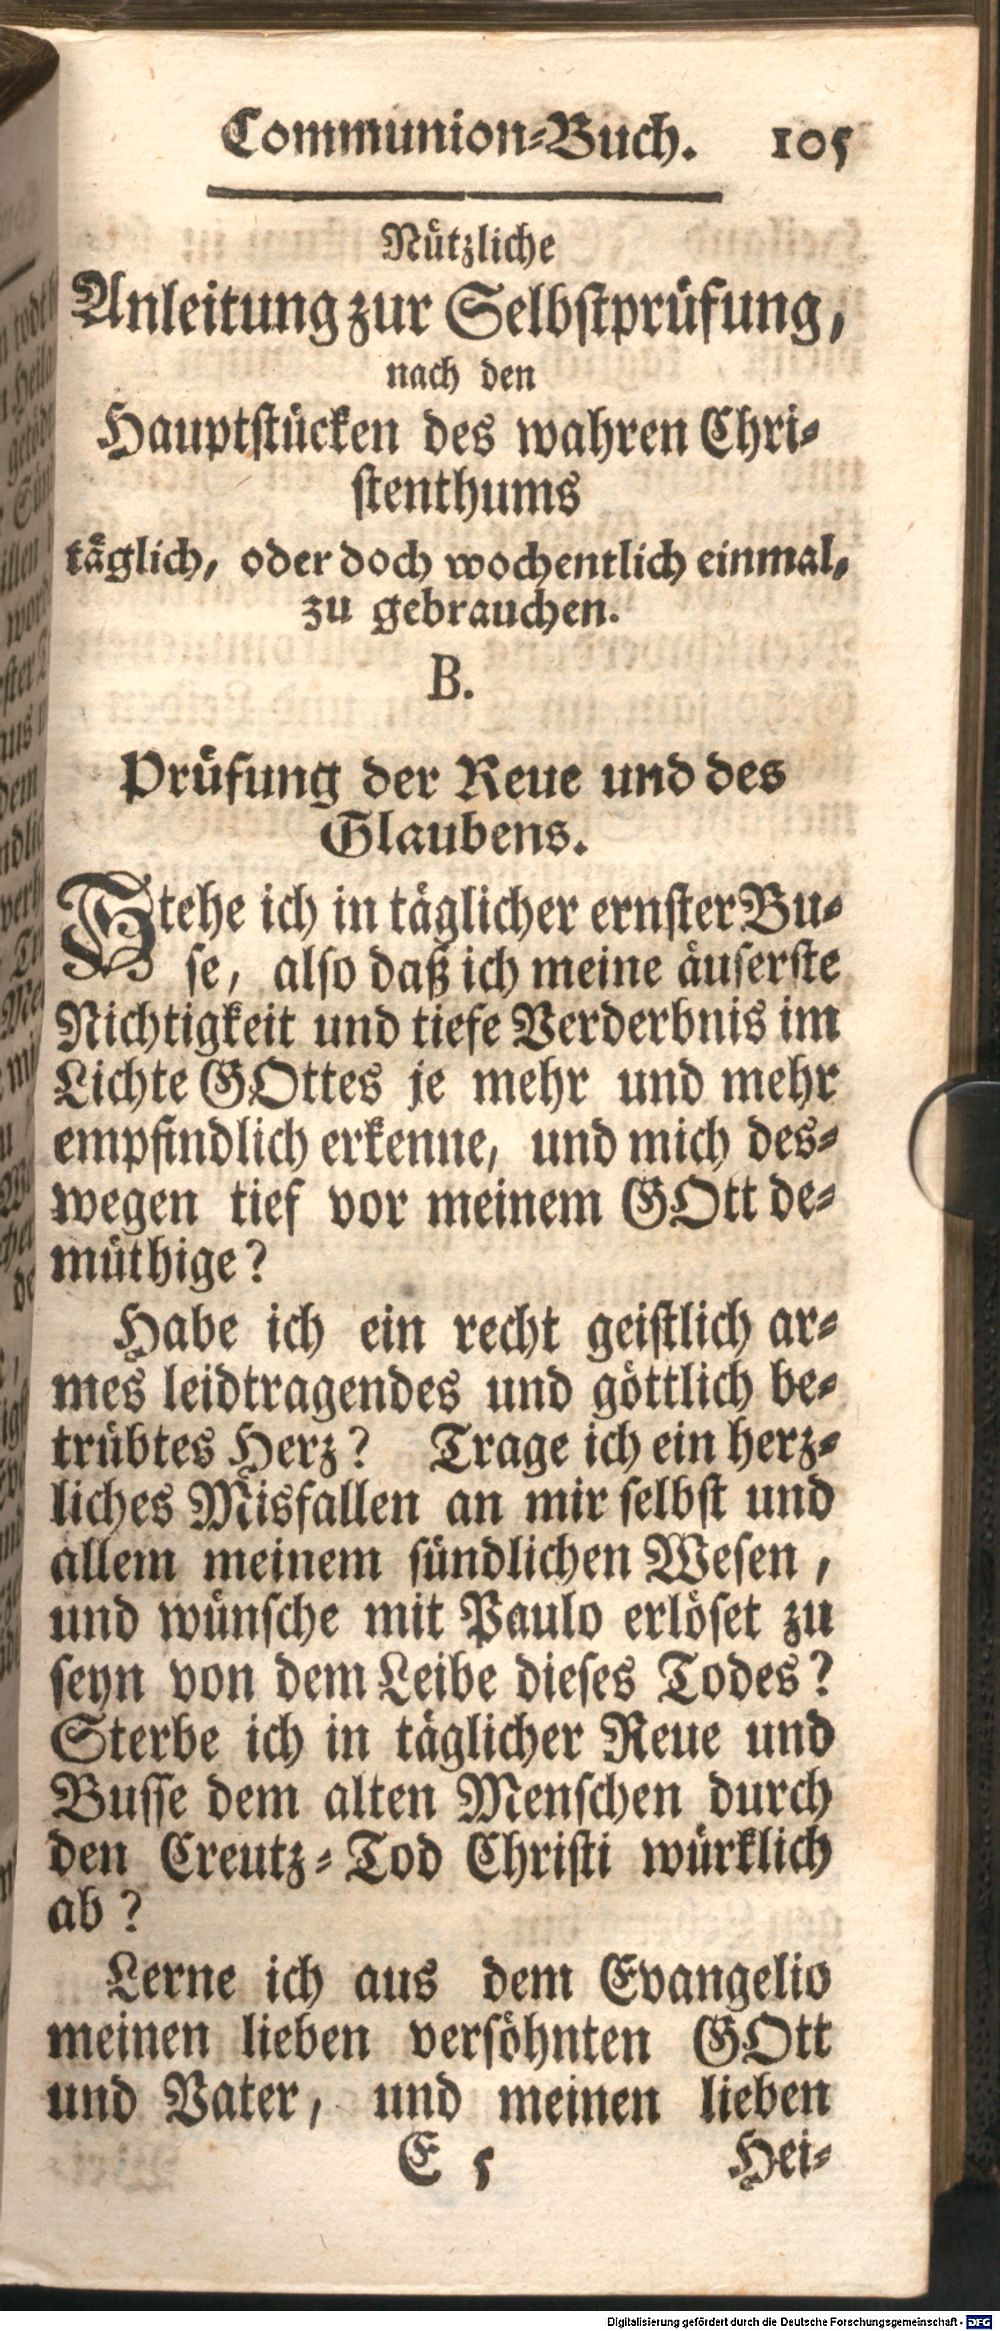 Communion-Buch. 105
Nützliche
Anleitung zur Selbstprüfung,
nach den
Hauptstücken des wahren Chri-
stenthums
täglich, oder doch wochentlich einmal,
zu gebrauchen.
B.
Prüfung der Reue und des
Glaubens.
Stehe ich in täglicher ernster Bu-
se, also daß ich meine äuserste
Nichtigkeit und tiefe Verderbnis im
Lichte GOttes je mehr und mehr
empfindlich erkenne, und mich des-
wegen tief vor meinem GOtt de-
müthige?
Habe ich ein recht geistlich ar-
mes leidtragendes und göttlich be-
trübtes Herz? Trage ich ein herz-
liches Misfallen an mir selbst und
allem meinem sündlichen Wesen,
und wünsche mit Paulo erlöset zu
seyn von dem Leibe dieses Todes?
Sterbe ich in täglicher Reue und
Busse dem alten Menschen durch
den Creutz-Tod Christi würklich
ab?
Lerne ich aus dem Evangelio
meinen lieben versöhnten GOtt
und Vater, und meinen lieben
E 5 Hei-
Digitalisierung gefördert durch die Deutsche Forschungsgemeinschaft - DFG